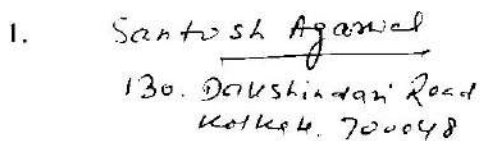 1. Santosh Agarwal
130. Dakshindari Road
Kolkata. 700048